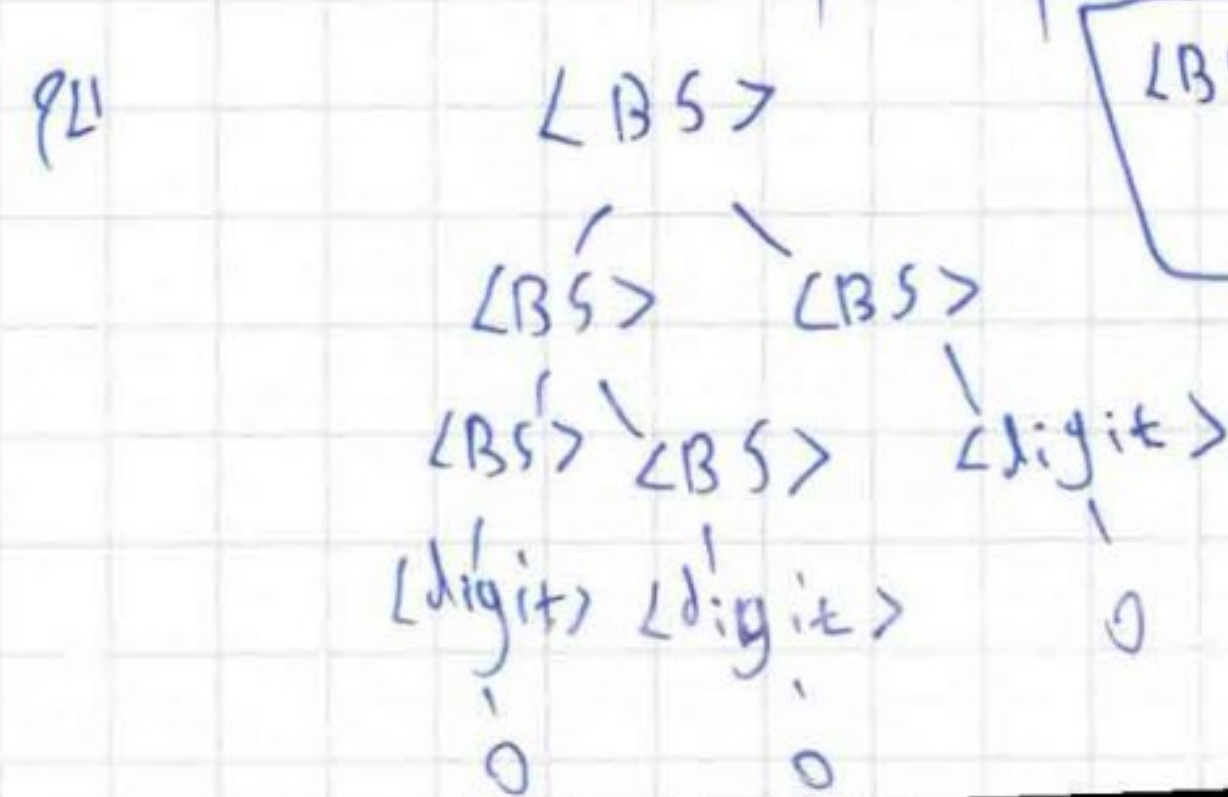 <BS>
<B
<BS> <BS>
<BS> <BS> <digit>
<digit> <digit> 0
0 0